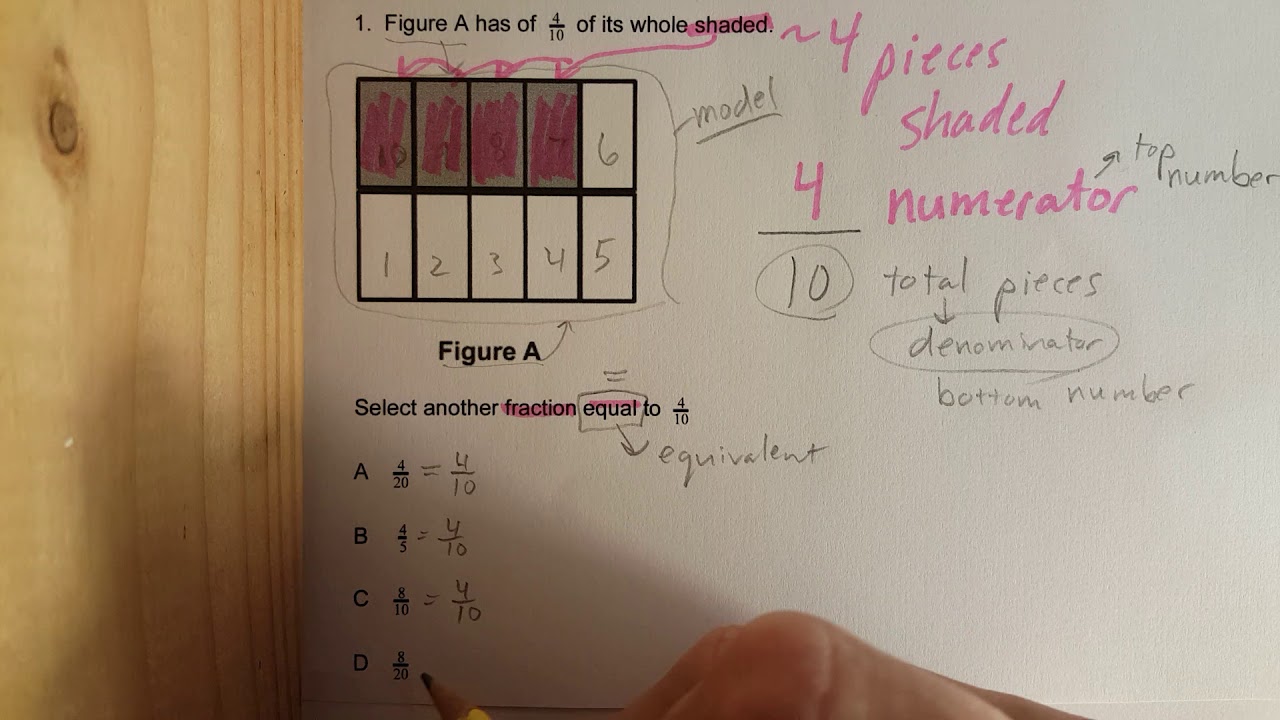 1. Figure A has of 4/10 of its whole shaded. ~ 4 pieces
shaded
model
4 numerator
top
number
10 total pieces
denominator
bottom number
10 8 7 6
1 2 3 4 5
Figure A
=
Select another fraction equal to 4/10
equivalent
A 4/20 = 4/10
B 4/5 = 4/10
C 8/10 = 4/10
D 8/20